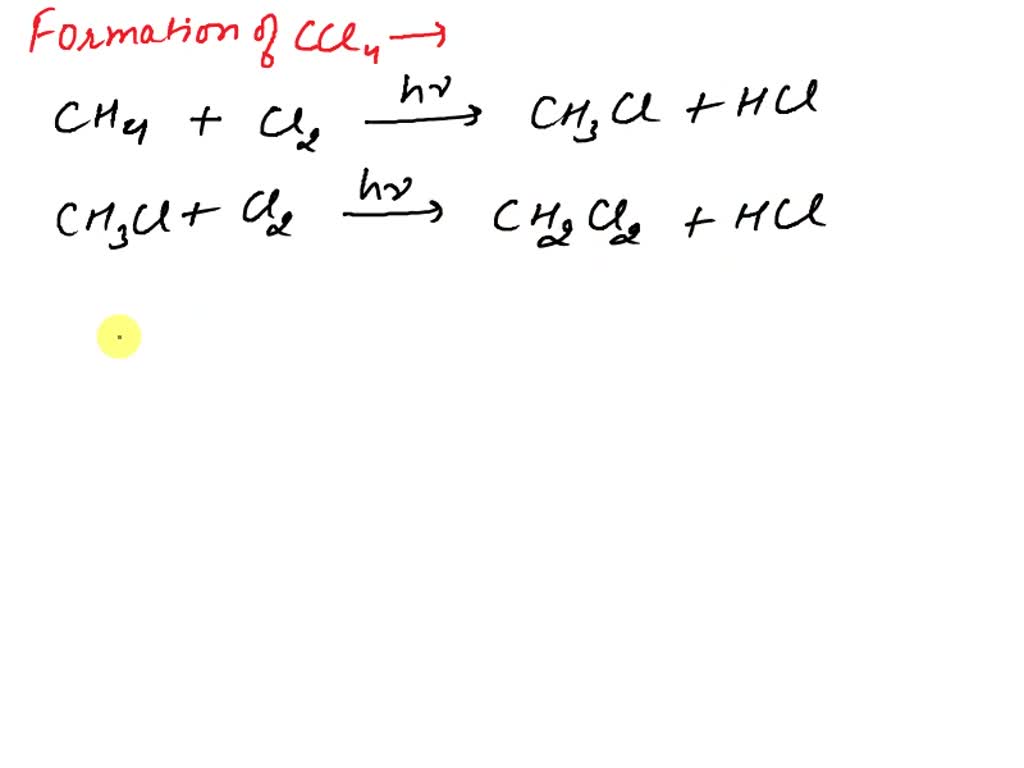 Formation of CCl4 →
CH4 + Cl2 hν → CH3Cl + HCl
CH3Cl + Cl2 hν → CH2Cl2 + HCl